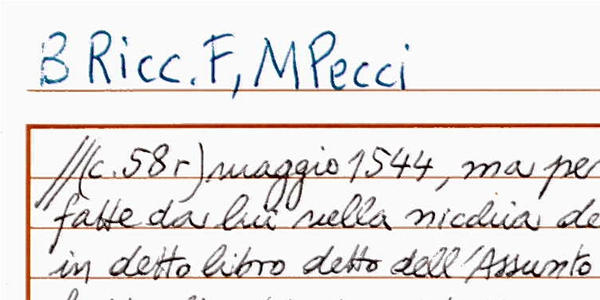 B Ricc. F, M Pecci
//(c. 58 r) maggio 1544, ma per
fatte da lui nella nicchia de
in detto libro detto dell'Assunto